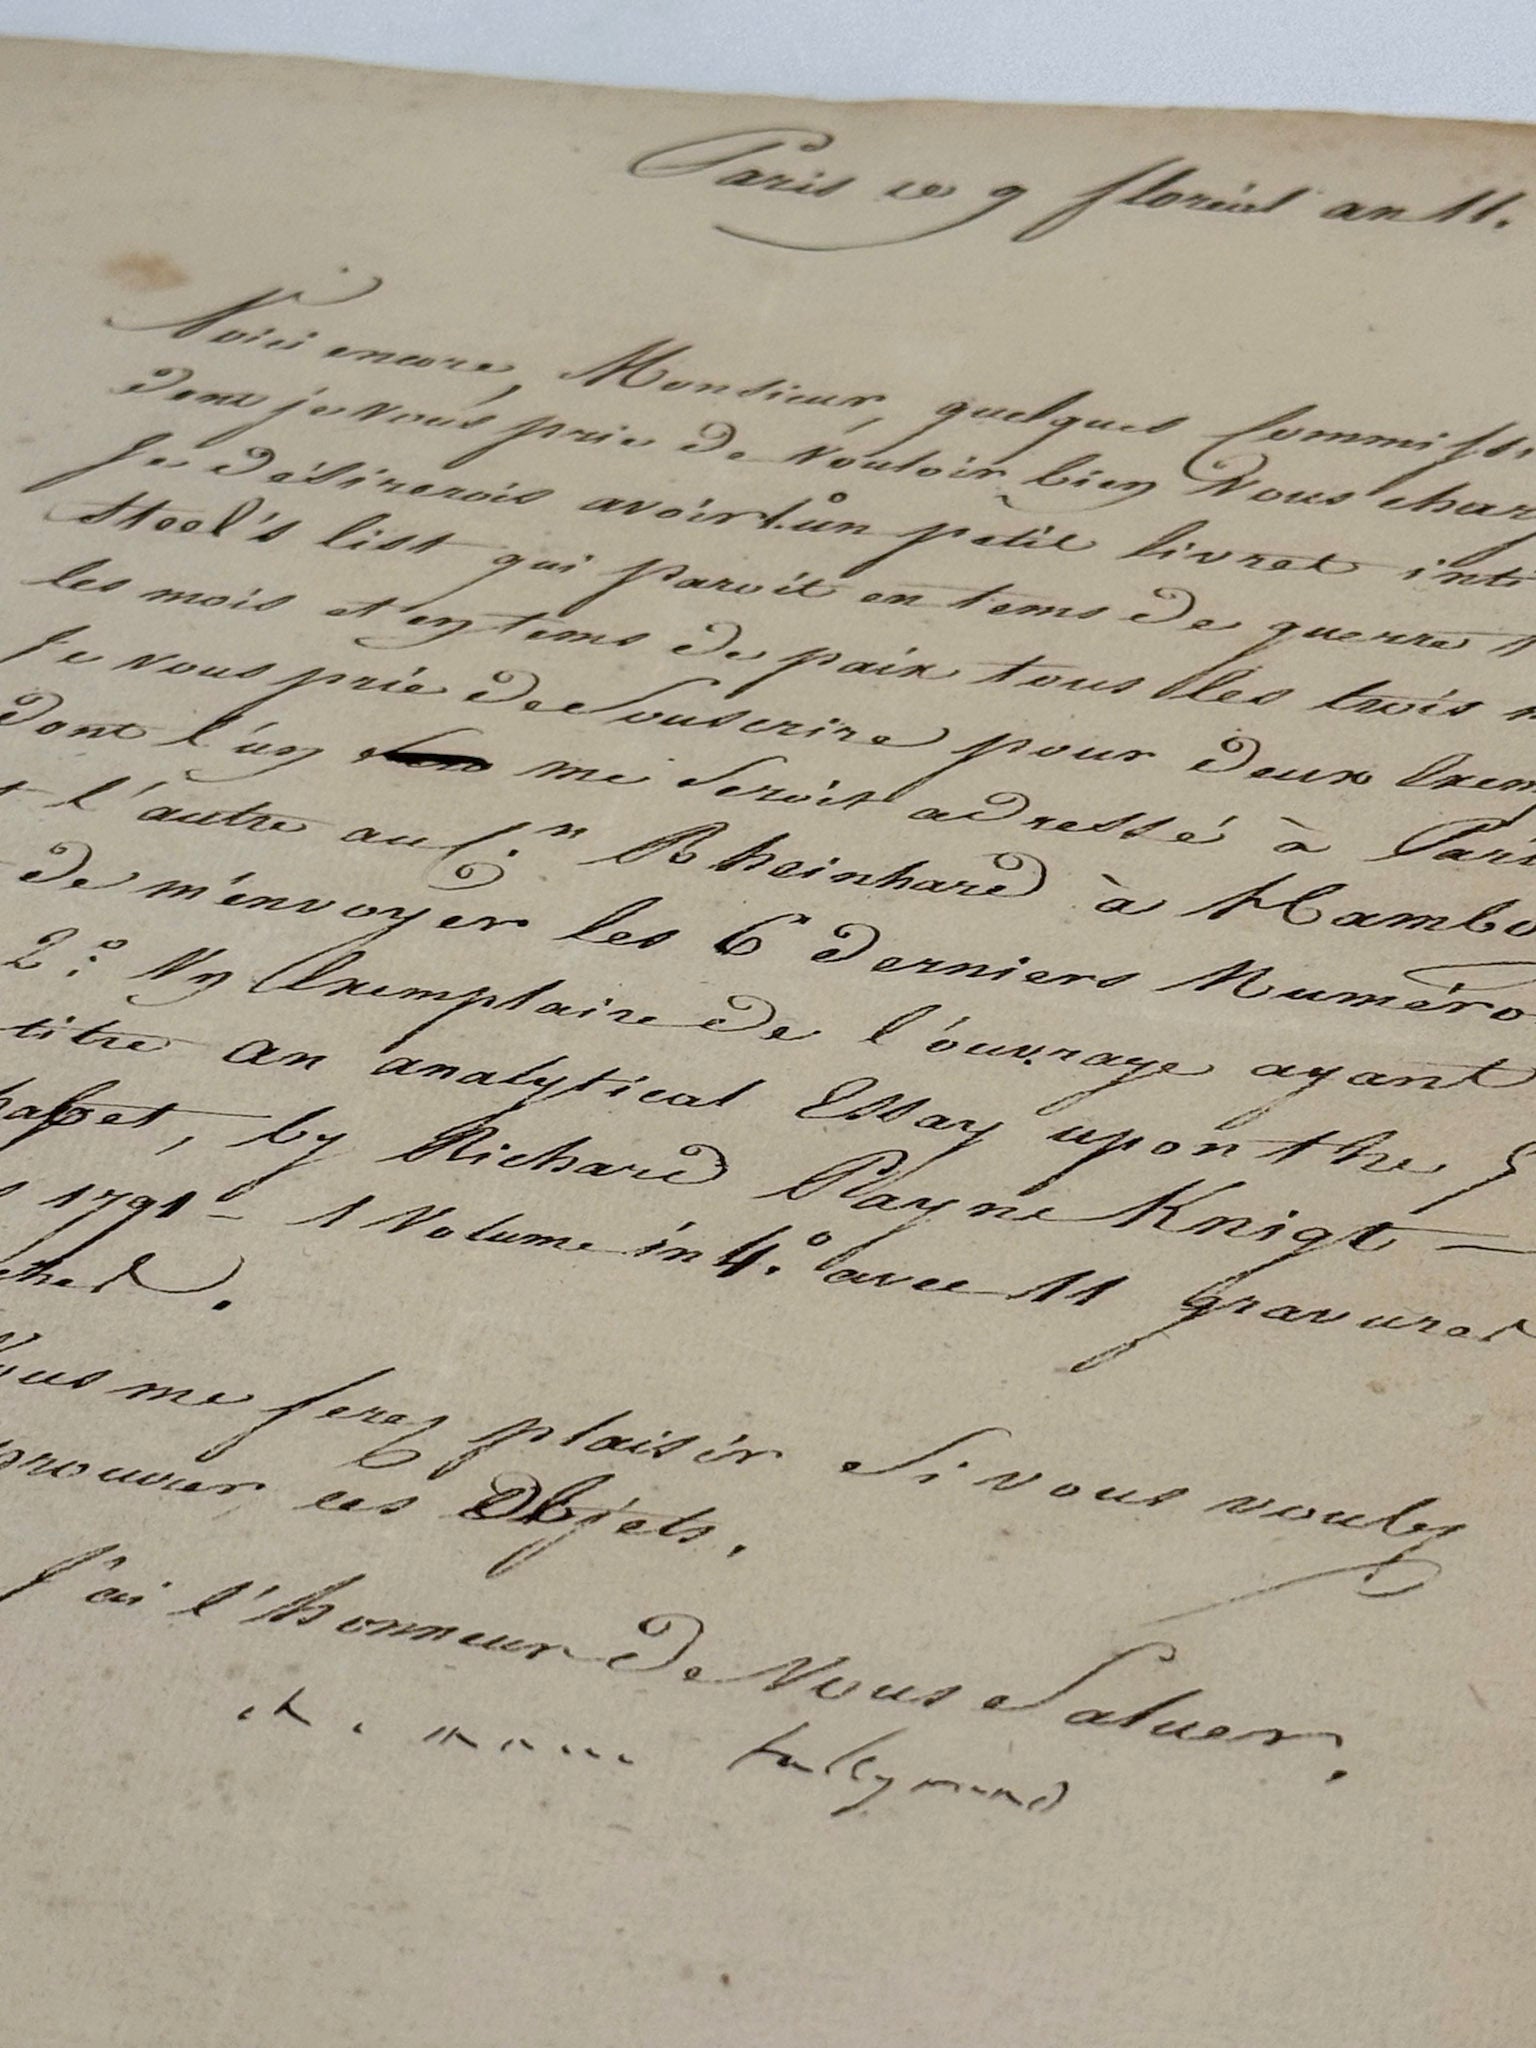 Paris ce 9 floréal an 11.
Voici encore, Monsieur, quelques Commissi
dont je vous prie de vouloir bien vous charg
Je désirerois avoir 1.º un petit livret inti
Steel's list qui paroît en tems de guerre t
les mois et en tems de paix tous les trois m
Je vous prie de souscrire pour deux Exem
dont l'un me seroit adressé à Paris
t l'autre au C.en Rheinhard à Hambo
de m'envoyer les 6 derniers Numéro
2.º Un Exemplaire de l'ouvrage ayant
titre an analytical Essay upon the g
habet, by Richard Payne Knigt —
s 1791 — 1 Volume in 4.º avec 11 gravures
ched.
Vous me ferez plaisir si vous voulez
procurer ces Objets.
J'ai l'honneur de vous Saluer.
talleyrand